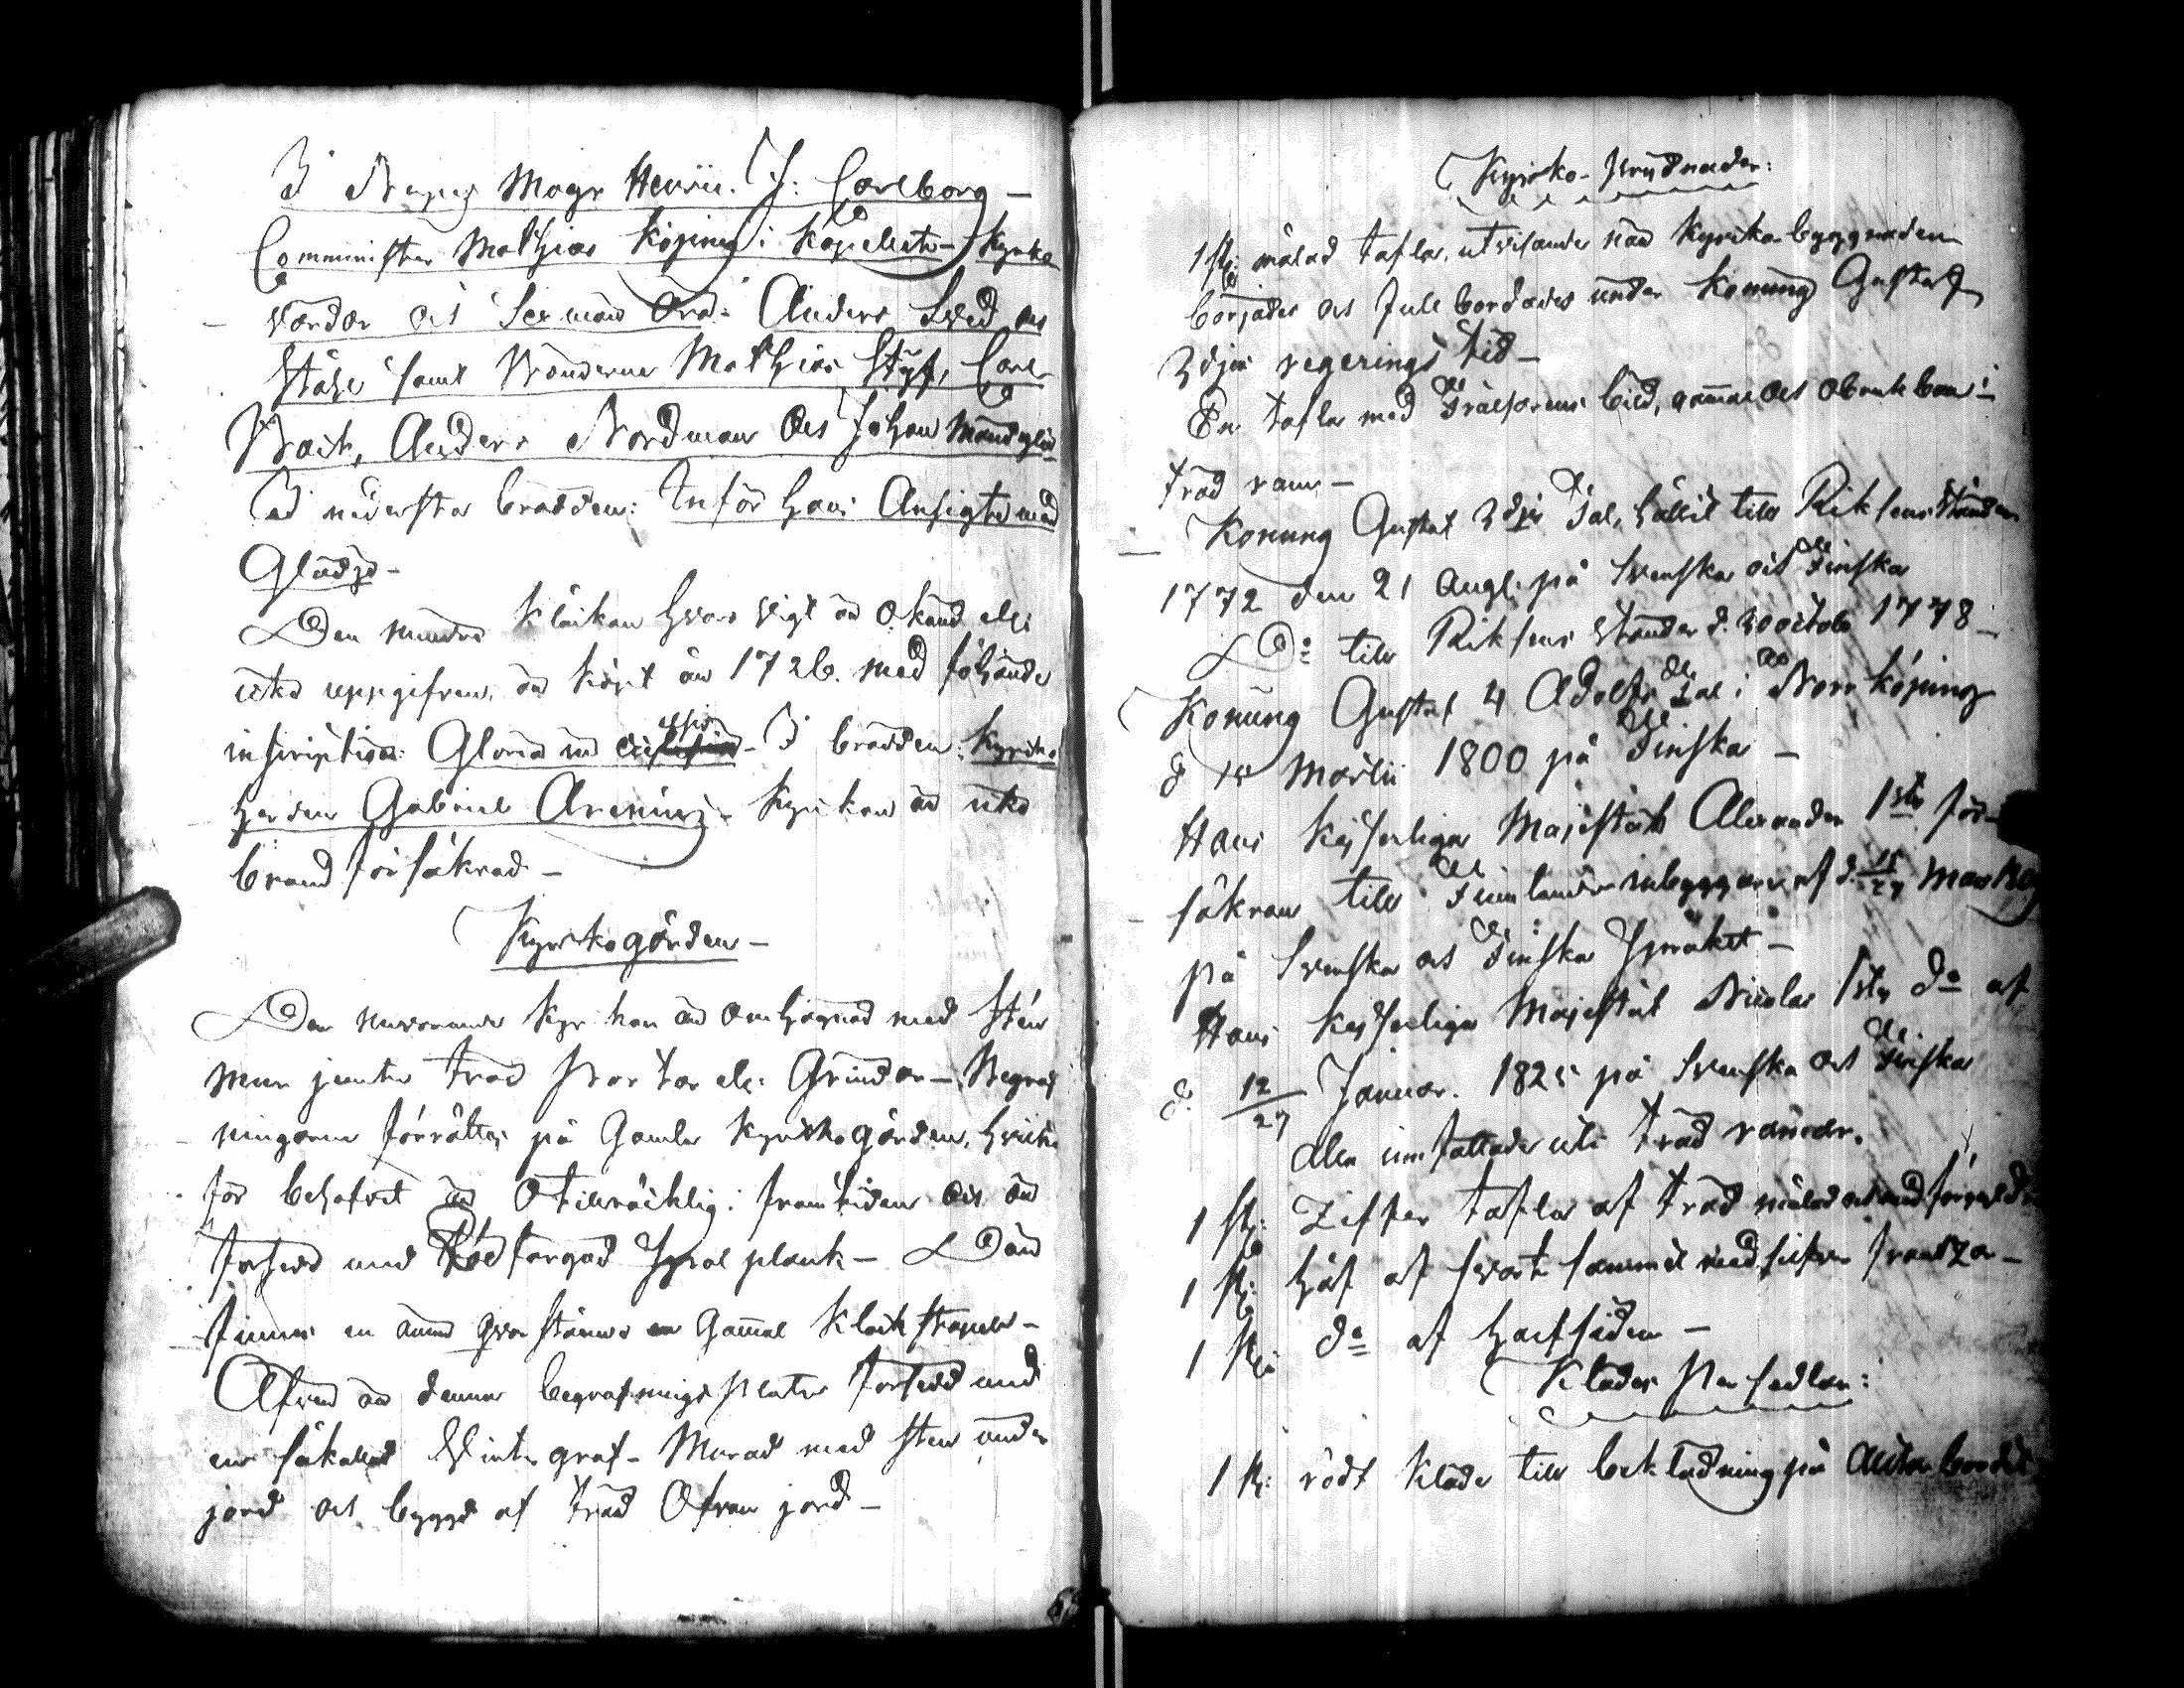 I Magr Henric. J: Carlborg –
Comminister Mathias Köping i Kapellet – Kyrko
värdar och Sexmän äro: Anders Sved och
Ståhl samt Mathias Styf, Carl
Anders Nordman och Johan
På nedersta brädden: Inför hans Ansigte med
Glädje –
Den mindre Klåckan hvars vigt är okänd ell:
icke uppgifven, är köpt år 1726. med följande
inscription: Gloria in – I brädden: Kyrko
herden Gabriel Arenius – Kyrkan är icke
brand försäkrad –
Kyrkogården –
Den nuvarande Kyrkan är omhägnad med Sten
mur jemte träd Portar ell: Grindar – Begraf
ningarna förrättas på Gamla Kyrkogården, hvilken
för behofvet är otillräcklig i framtiden och är
försedd med Rödfärgad Spjal plank – Där
finnes en ännu qvarstående Gammal Klåckstapel –
Äfven är denna begrafningsplats försedd med
en såkallad Vintergraf – Murad med sten under
jord och byggd af träd Ofvan jord –
Kyrko-Prydnader:
1 st: målad tafla, utvisande när Kyrko byggnaden
börjades och fullbordades under Konung Gustaf
3djes regerings tid –
En tafla med Frälsarens bild, gammal och obrukbar i
träd ram –
Konung Gustaf 3djes Tal, hållit till Riksens Ständer
1772 den 21 Aug: på Svenska och Finska
Do till Riksens Ständer d. 30 Octob 1778 –
Konung Gustaf 4 Adolfs Tal i Norrköping
d 15 Martii 1800 på Finska –
Hans Kejserliga Majestäts Alexander 1sta för-
säkran till Finnlands inbyggare af d. 15/27 Mars
på Svenska och Finska Språket –
Hans Kejserliga Majestät Nicolai 1sta do af
d. 12/27 Januar. 1825 på Svenska och Finska
Alla innfattade uti träd ramar.
1 st: Ziffer tafla af träd målad och med
1 st: håf af svart sammet med silfver frantzar –
1 st: do af halfsiden –
Klädes Persedlar:
1 st: rödt Kläde till beklädning på Altar bordet